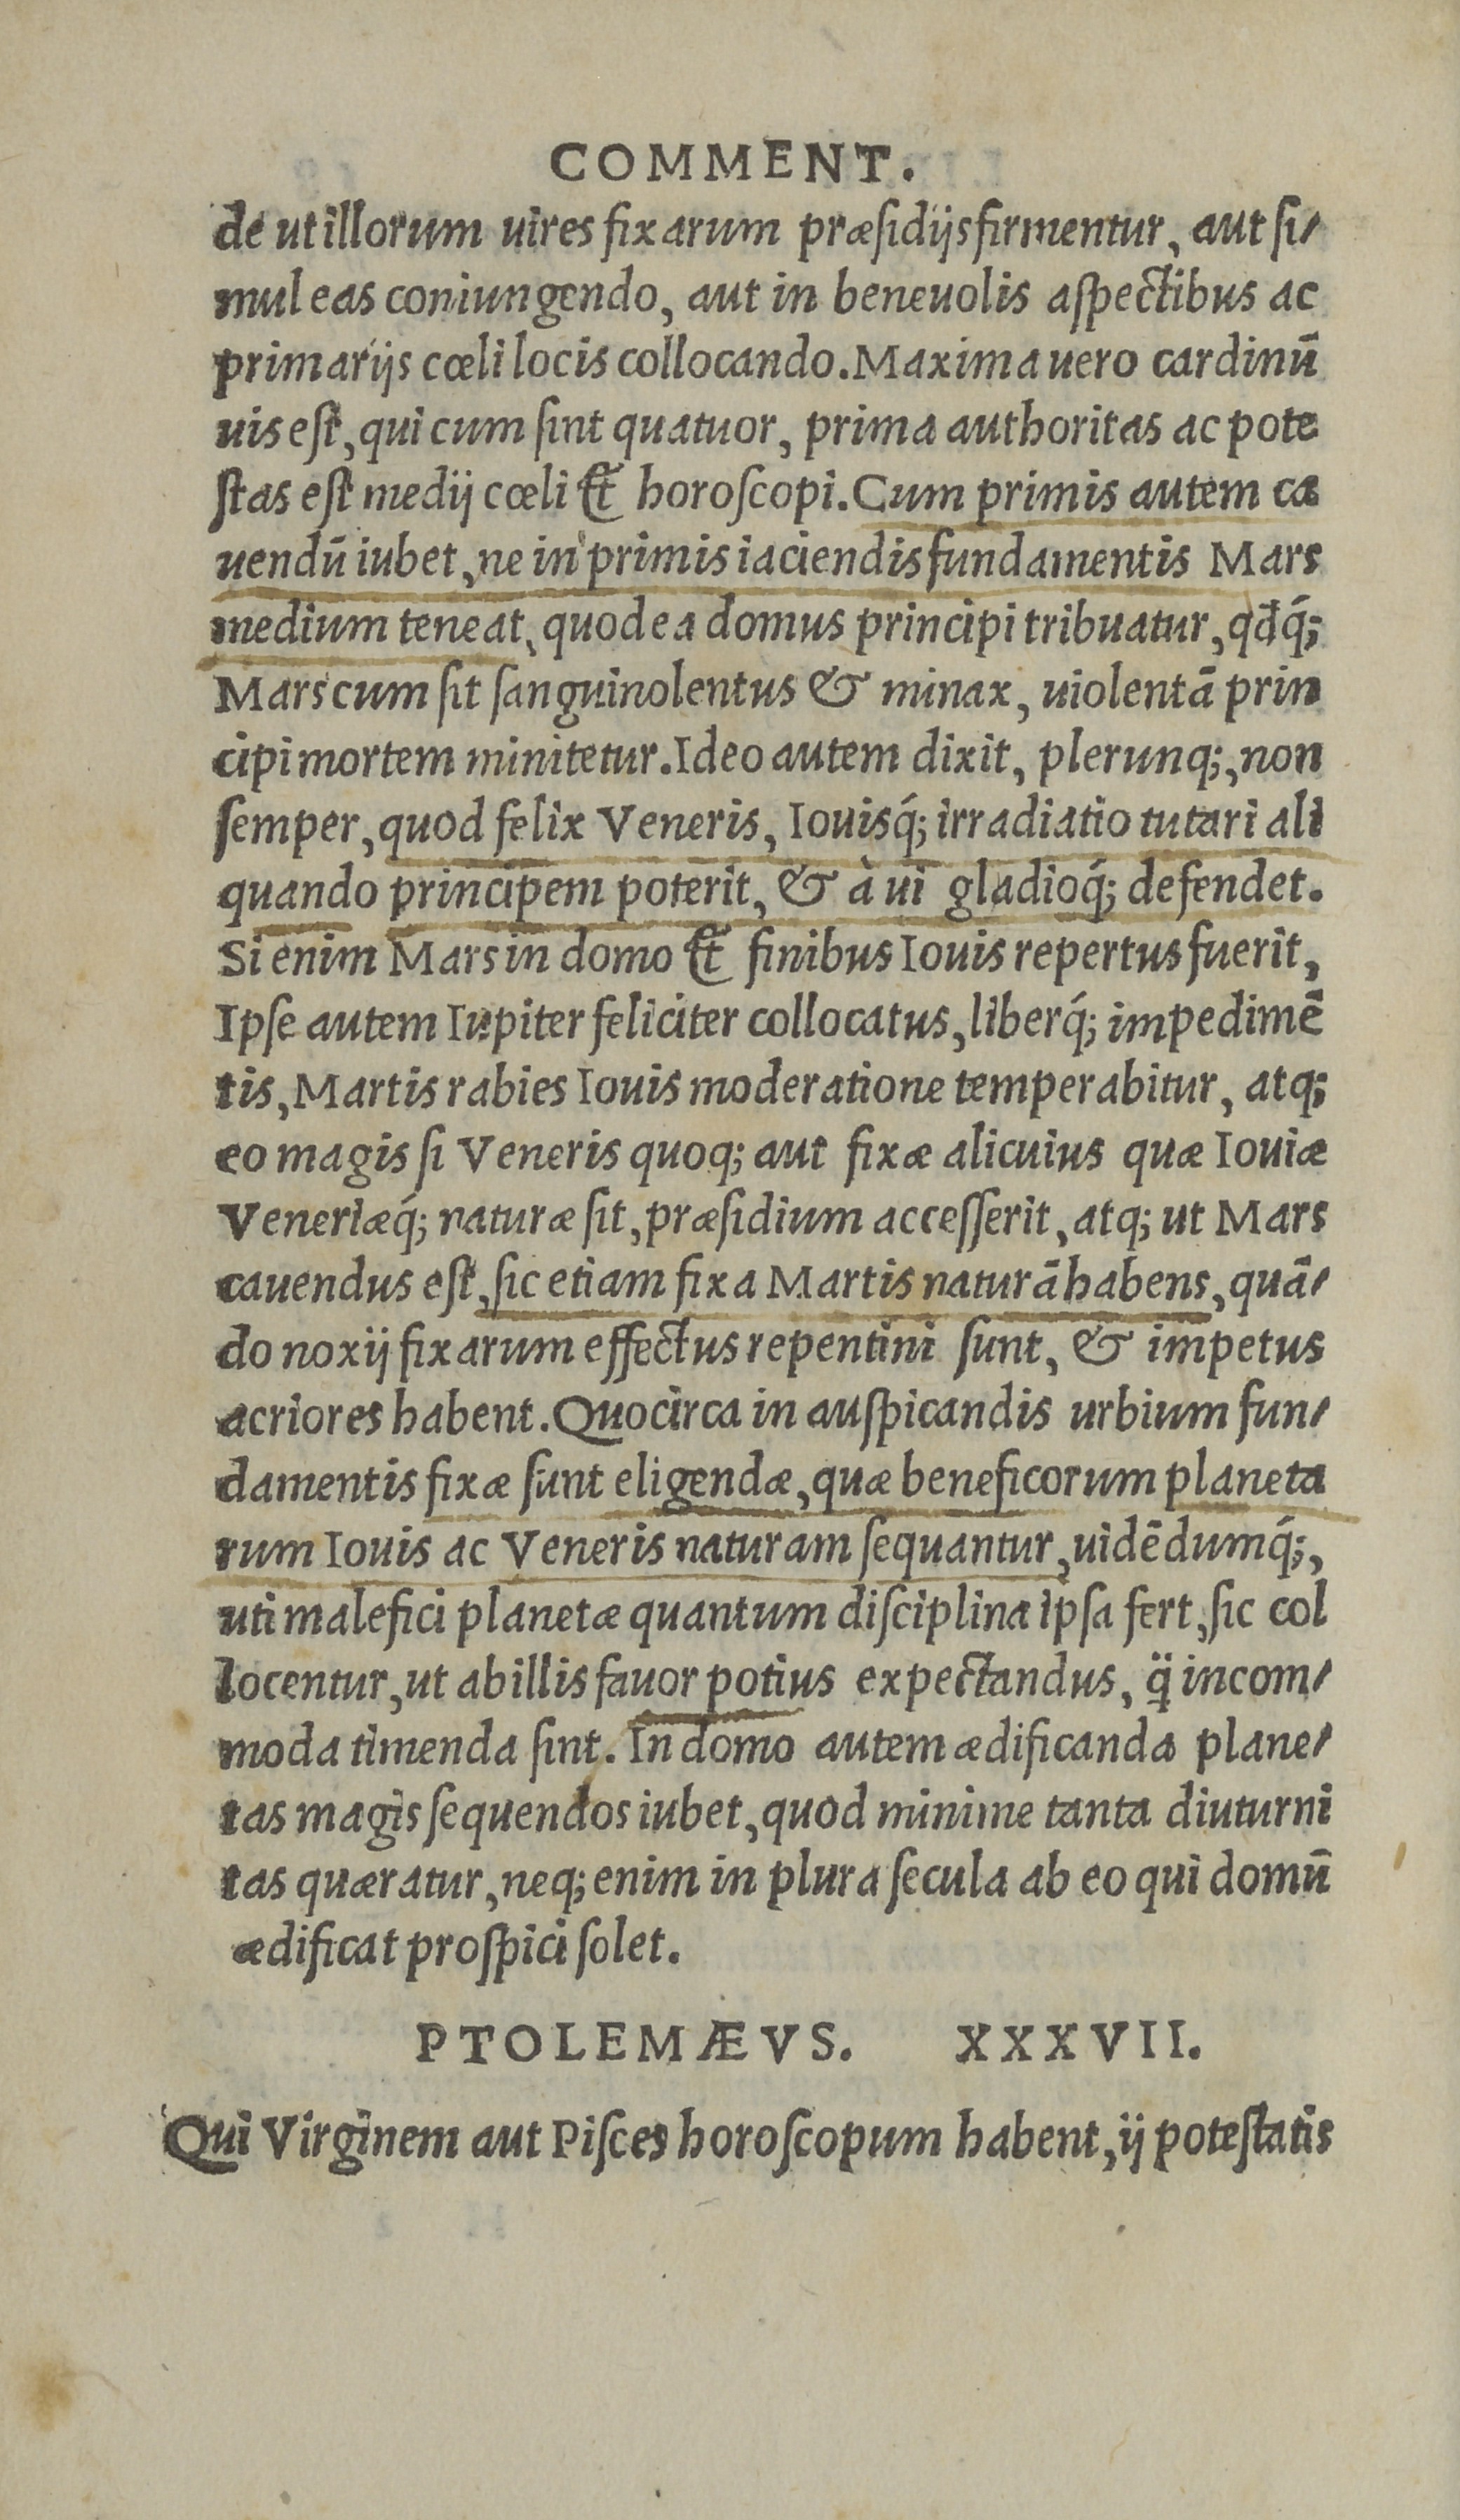 COMMENT.
de ut illorum uires fixarum præsidijs firmentur, aut si-
mul eas coniungendo, aut in beneuolis aspectibus ac
primarijs cœli locis collocando. Maxima uero cardinū
uis est, qui cum sint quatuor, prima authoritas ac pote
stas est medij cœli & horoscopi. Cum primis autem ca
uendū iubet, ne in primis iaciendis fundamentis Mars
medium teneat, quod ea domus principi tribuatur, qđq́;
Mars cum sit sanguinolentus & minax, uiolentā prin
cipi mortem minitetur. Ideo autem dixit, plerunq;, non
semper, quod felix Veneris, Iouisq́; irradiatio tutari ali
quando principem poterit, & à ui gladioq́; defendet.
Si enim Mars in domo & finibus Iouis repertus fuerit,
Ipse autem Iupiter feliciter collocatus, liberq́; impedimē
tis, Martis rabies Iouis moderatione temperabitur, atq;
eo magis si Veneris quoq; aut fixæ alicuius quæ Iouiæ
Veneriæq́; naturæ sit, præsidium accesserit, atq; ut Mars
cauendus est, sic etiam fixa Martis naturā habens, quā-
do noxij fixarum effectus repentini sunt, & impetus
acriores habent. Quocirca in auspicandis urbium fun-
damentis fixæ sunt eligendæ, quæ beneficorum planeta
rum Iouis ac Veneris naturam sequantur, uidēdumq́;,
uti malefici planetæ quantum disciplina ipsa fert, sic col
locentur, ut ab illis fauor potius expectandus, q̈ incom-
moda timenda sint. In domo autem ædificanda plane-
tas magis sequendos iubet, quod minime tanta diuturni
tas quæratur, neq; enim in plura secula ab eo qui domū
ædificat prospici solet.
PTOLEMÆVS. XXXVII.
Qui Virginem aut Pisces horoscopum habent, ij potestatis